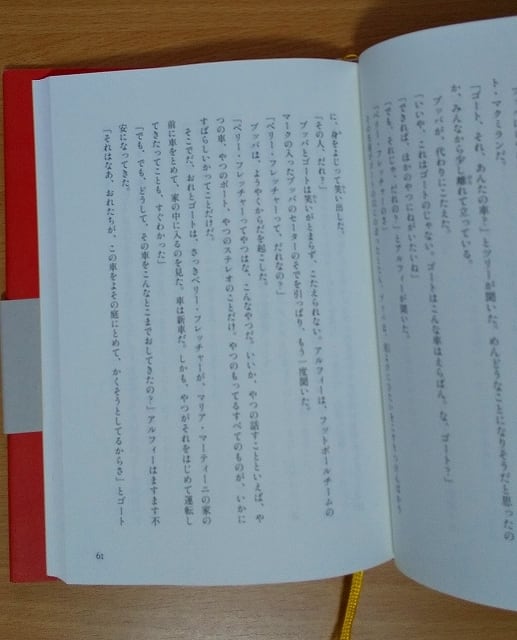 ト・マクミランだ。
「ゴート、それ、あんたの車？」とツリーが聞いた。めんどうなことになりそうだと思ったの
か、みんなから少し離れて立っている。
ブッバが、代わりにこたえた。
「いいや、これはゴートのじゃない。ゴートはこんな車はえらばん。な、ゴート？」
「できれば、ほかのやつにねがいたいね」
「でも、それじゃ、だれの？」とアルフィーが聞いた。
「ペリー・フレッチャーのさ」
に、身をよじって笑い出した。
「その人、だれ？」
ブッバとゴートは笑いがとまらず、こたえられない。アルフィーは、フットボールチームの
マークの入ったブッバのセーターのそでを引っぱり、もう一度聞いた。
「ペリー・フレッチャーって、だれなの？」
ブッバは、ようやくからだを起こした。
「ペリー・フレッチャーってやつはな、こんなやつだ。いいか、やつの話すことといえば、や
つの車、やつのボート、やつのステレオのことだけ。やつのもってるすべてのものが、いかに
すばらしいかってことだけだ。
そこでだ、おれとゴートは、さっきペリー・フレッチャーが、マリア・マーティーニの家の
前に車をとめて、家の中に入るのを見た。車は新車だ。しかも、やつがそれをはじめて運転し
てきたってことも、すぐわかった」
「でも、でも、どうして、その車をこんなとこまでおしてきたの？」アルフィーはますます不
安になってきた。
「それはなあ、おれたちが、この車をよその庭にとめて、かくそうとしてるからさ」とゴート
61